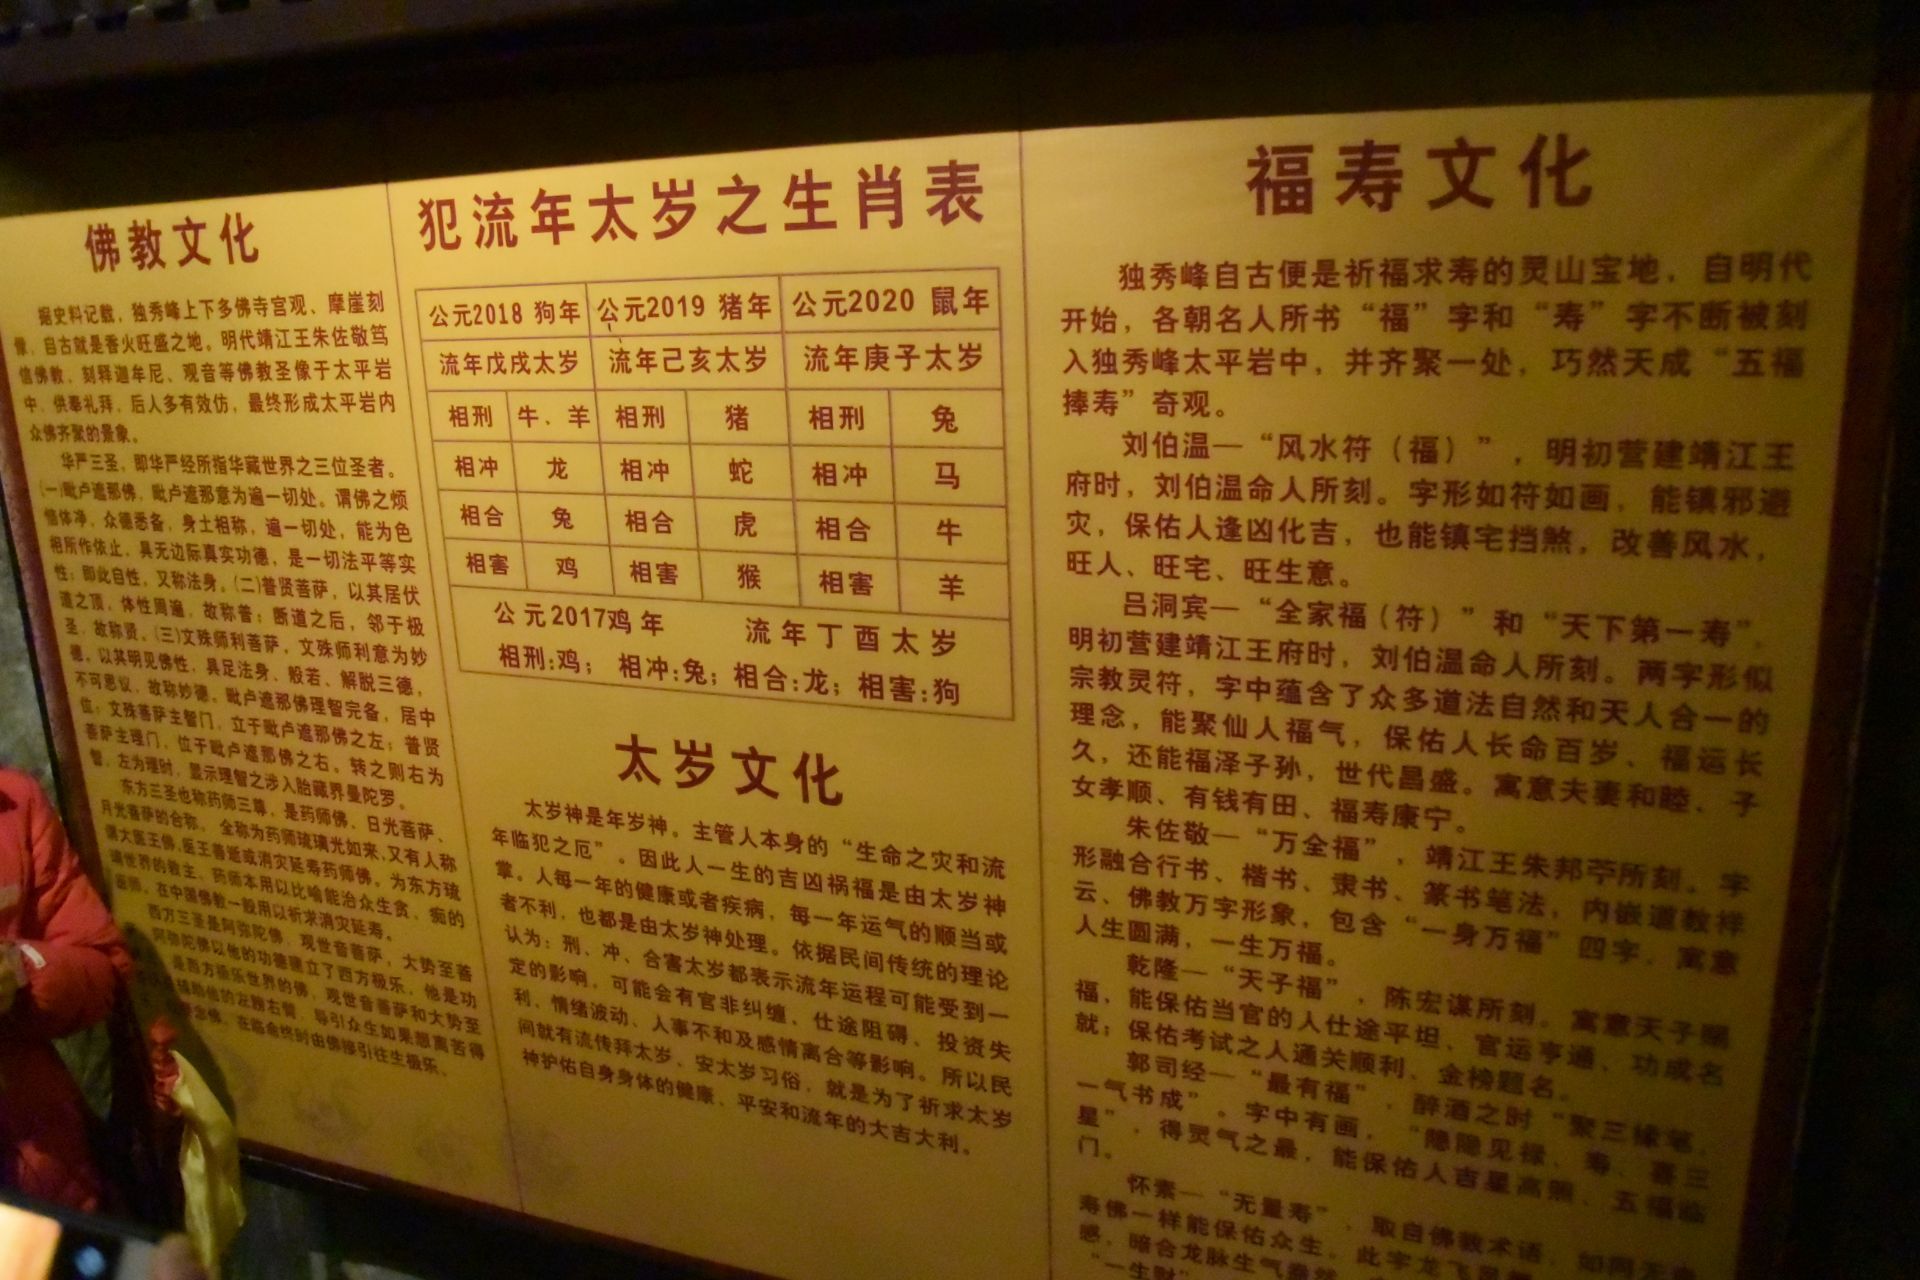 佛教文化
据史料记载，独秀峰上下多佛寺宫观、摩崖刻
像，自古就是香火旺盛之地。明代靖江王朱佐敬笃
信佛教，刻释迦牟尼、观音等佛教圣像于太平岩
中，供奉礼拜，后人多有效仿，最终形成太平岩内
众佛齐聚的景象。
华严三圣，即华严经所指华藏世界之三位圣者。
(一)毗卢遮那佛，毗卢遮那意为遍一切处。谓佛之烦
恼体净，众德悉备，身土相称，遍一切处，能为色
相所作依止，具无边际真实功德，是一切法平等实
性；即此自性，又称法身。(二)普贤菩萨，以其居伏
道之顶，体性周遍，故称普；断道之后，邻于极
圣，故称贤。(三)文殊师利菩萨，文殊师利意为妙
德，以其明见佛性，具足法身、般若、解脱三德，
不可思议，故称妙德。毗卢遮那佛理智完备，居中
位；文殊菩萨主智门，立于毗卢遮那佛之左；普贤
菩萨主理门，位于毗卢遮那佛之右。转之则右为
智，左为理时，显示理智之涉入胎藏界曼陀罗。
东方三圣也称药师三尊，是药师佛、日光菩萨、
月光菩萨的合称，全称为药师琉璃光如来，又有人称
谓大医王佛，医王善逝或消灾延寿药师佛。为东方琉
璃世界的救主。药师本用以比喻能治众生贪、痴的
医师，在中国佛教一般用以祈求消灾延寿。
西方三圣是阿弥陀佛，观世音菩萨，大势至菩
阿弥陀佛以他的功德建立了西方极乐，他是功
是西方极乐世界的佛，观世音菩萨和大势至
辅助他的左膀右臂，导引众生如果想离苦得
念佛，在临命终时由佛接引往生极乐、
犯流年太岁之生肖表
公元2018 狗年 公元2019 猪年 公元2020 鼠年
流年戊戌太岁 流年己亥太岁 流年庚子太岁
相刑 牛、羊 相刑 猪 相刑 兔
相冲 龙 相冲 蛇 相冲 马
相合 兔 相合 虎 相合 牛
相害 鸡 相害 猴 相害 羊
公元2017鸡年 流年丁酉太岁
相刑:鸡；相冲:兔；相合:龙；相害:狗
太岁文化
太岁神是年岁神。主管人本身的“生命之灾和流
年临犯之厄”。因此人一生的吉凶祸福是由太岁神
掌。人每一年的健康或者疾病，每一年运气的顺当或
者不利，也都是由太岁神处理。依据民间传统的理论
认为：刑、冲、合害太岁都表示流年运程可能受到一
定的影响，可能会有官非纠缠、仕途阻碍、投资失
利，情绪波动、人事不和及感情离合等影响。所以民
间就有流传拜太岁、安太岁习俗，就是为了祈求太岁
神护佑自身身体的健康、平安和流年的大吉大利。
福寿文化
独秀峰自古便是祈福求寿的灵山宝地，自明代
开始，各朝名人所书“福”字和“寿”字不断被刻
入独秀峰太平岩中，并齐聚一处，巧然天成“五福
捧寿”奇观。
刘伯温—“风水符（福）”，明初营建靖江王
府时，刘伯温命人所刻。字形如符如画，能镇邪避
灾，保佑人逢凶化吉，也能镇宅挡煞，改善风水，
旺人、旺宅、旺生意。
吕洞宾—“全家福（符）”和“天下第一寿”，
明初营建靖江王府时，刘伯温命人所刻。两字形似
宗教灵符，字中蕴含了众多道法自然和天人合一的
理念，能聚仙人福气，保佑人长命百岁、福运长
久，还能福泽子孙，世代昌盛。寓意夫妻和睦、子
女孝顺、有钱有田、福寿康宁。
朱佐敬—“万全福”，靖江王朱邦苧所刻。字
形融合行书、楷书、隶书、篆书笔法，内嵌道教祥
云、佛教万字形象，包含“一身万福”四字，寓意
人生圆满，一生万福。
乾隆—“天子福”，陈宏谋所刻。寓意天子赐
福，能保佑当官的人仕途平坦、官运亨通、功成名
就；保佑考试之人通关顺利、金榜题名。
郭司经—“最有福”，醉酒之时“聚三椽笔，
一气书成”。字中有画，“隐隐见禄、寿、喜三
星”，得灵气之最，能保佑人吉星高照、五福临
门。
怀素—“无量寿”，取自佛教术语，如同无量
寿佛一样能保佑众生。此字龙飞凤
感，暗合龙脉生气
“一生财”